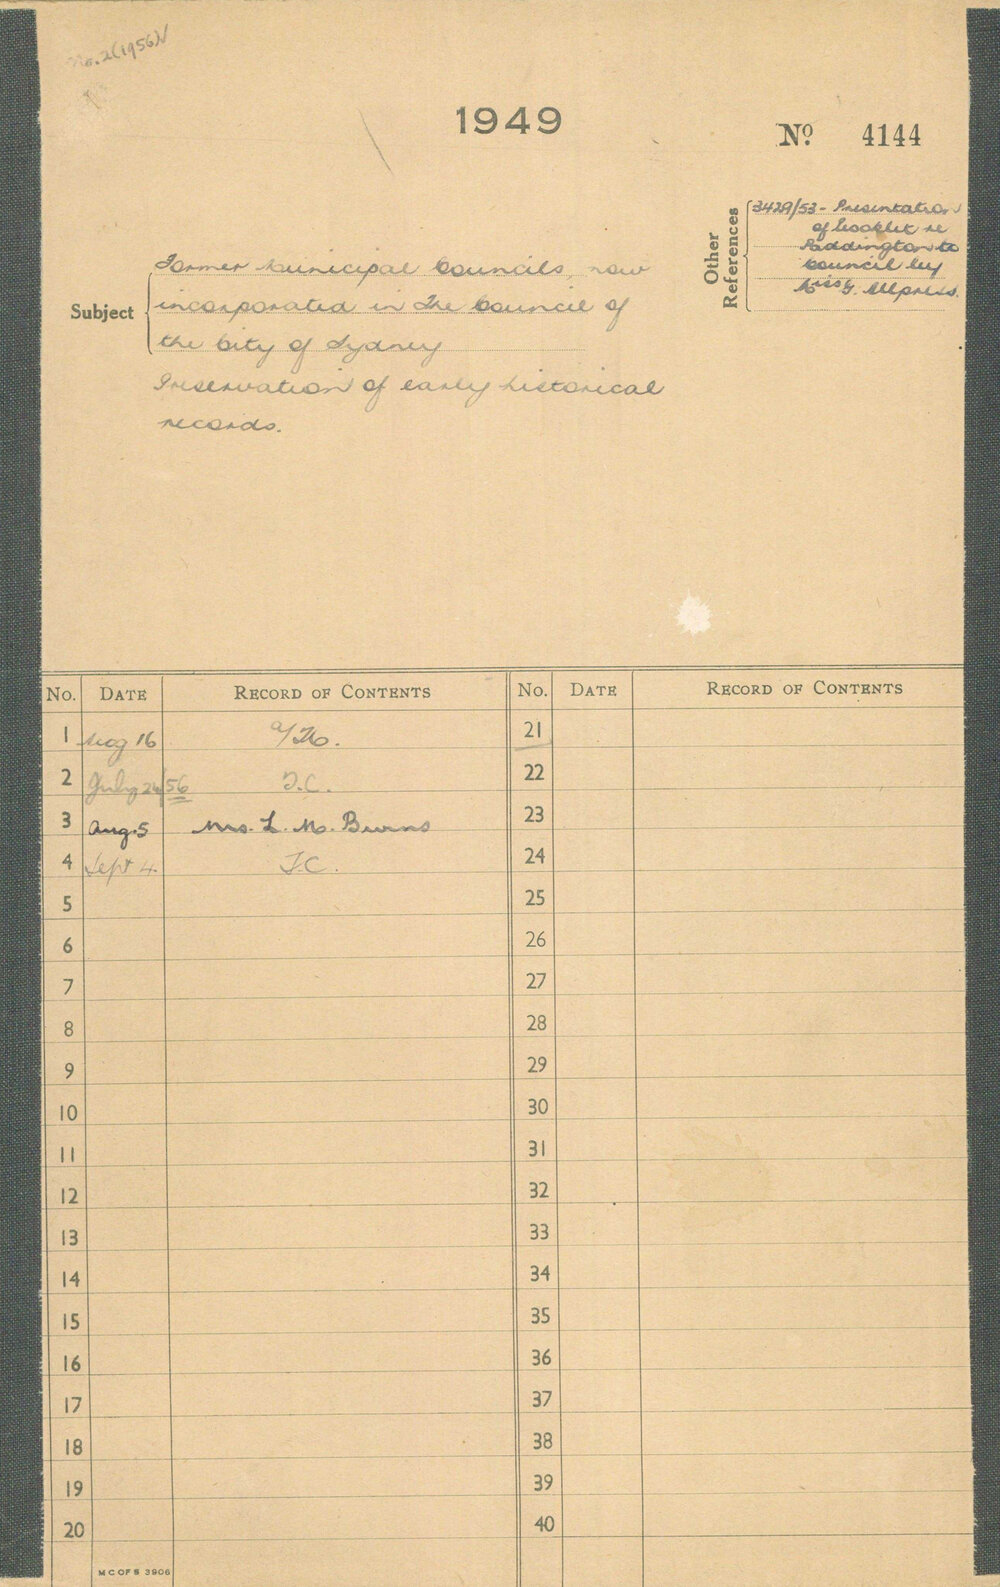 No. 2 (1956)
1949
No. 4144
Other References
3429/53 - Presentation
of booklet re
Paddington to
Council by
Miss G. Allpress.
Subject
Former Municipal Councils, now
incorporated in The Council of
the City of Sydney
Preservation of early historical
records.
No. DATE RECORD OF CONTENTS No. DATE RECORD OF CONTENTS
1 Aug 16 21
2 July 24/56 T.C. 22
3 Aug. 5 Mrs. L. M. Burns 23
4 Sept 4. T.C. 24
5 25
6 26
7 27
8 28
9 29
10 30
11 31
12 32
13 33
14 34
15 35
16 36
17 37
18 38
19 39
20 40
M C OF S 3906